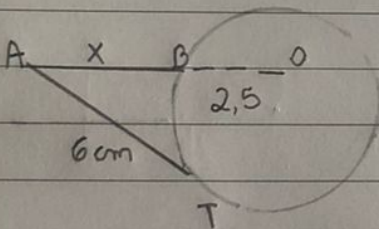 A X B O
2,5
6cm
T